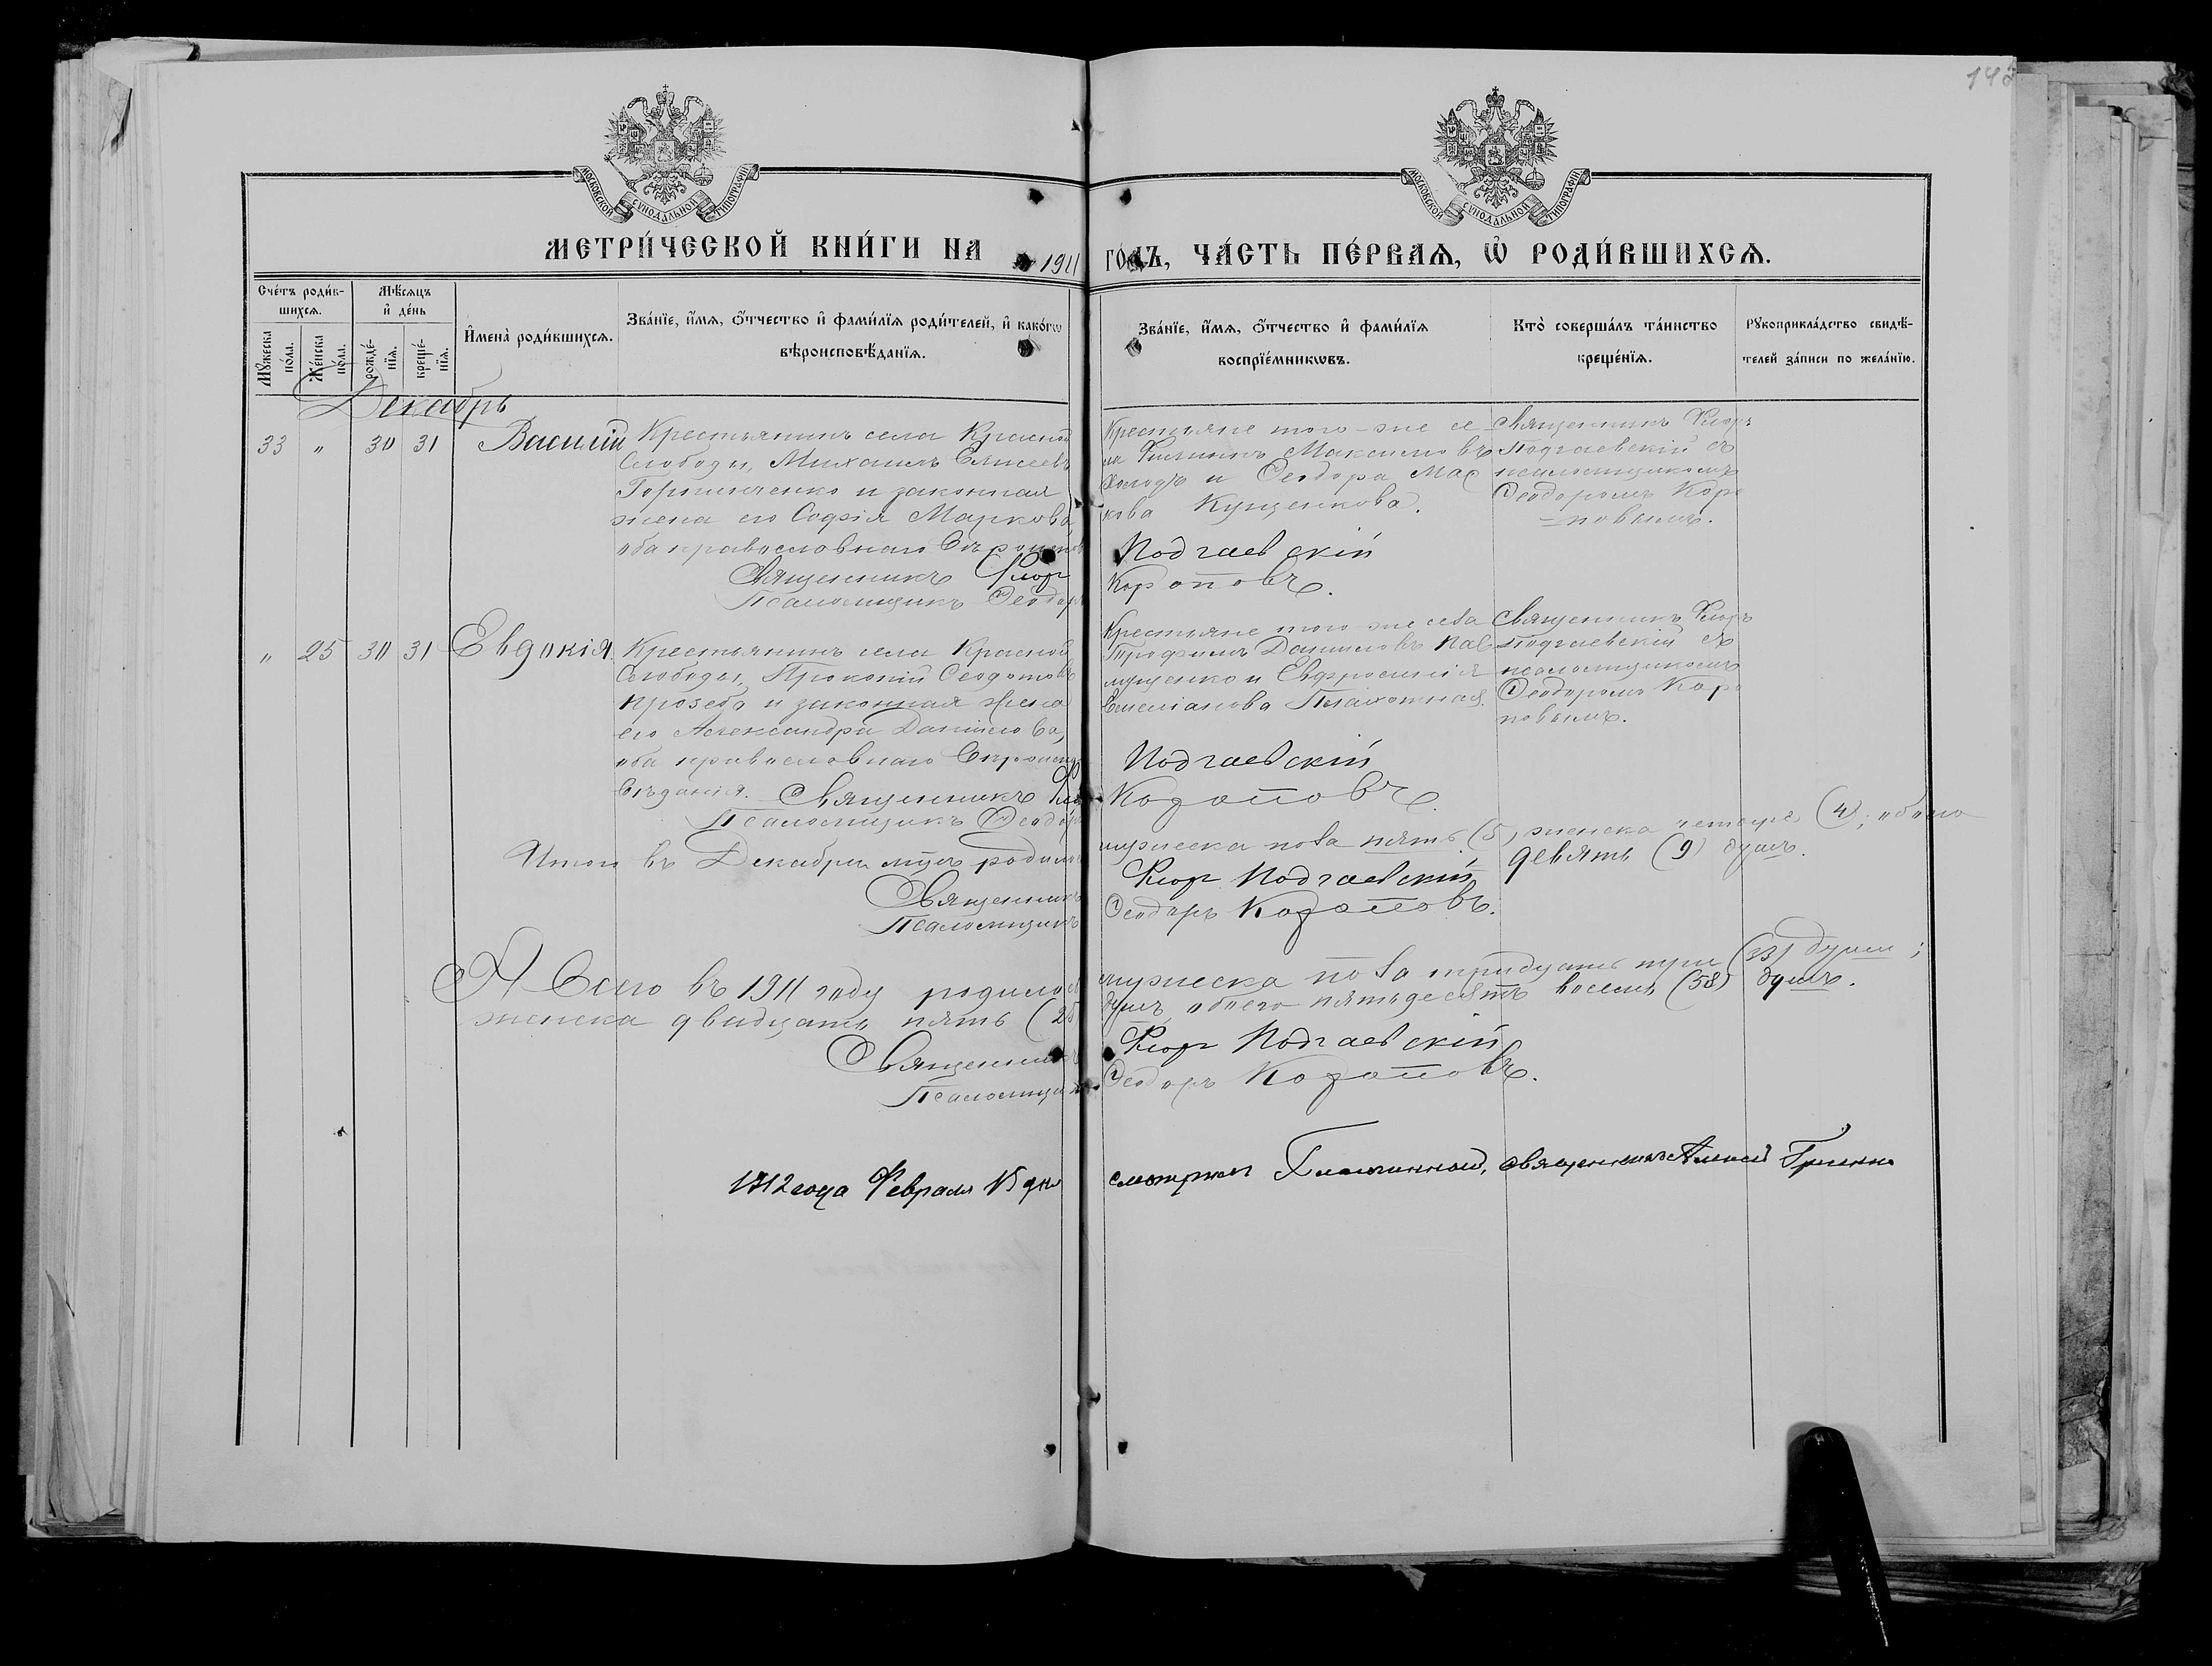 143
МОСКОВСКОЙ СѴНОДАЛЬНОЙ ТИПОГРАФІИ
МОСКОВСКОЙ СѴНОДАЛЬНОЙ ТИПОГРАФІИ
МЕТРИ́ЧЕСКОЙ КНИ́ГИ НА 1911 ГО́ДЪ, ЧА́СТЬ ПЕ́РВАѦ, Ѡ҆ РОДИ́ВШИХСѦ.
Сче́тъ роди́в-
шихсѧ.
Мѣ́сѧцъ
и҆ де́нь
Мꙋ́жеска
по́ла.
Же́нска
по́ла.
рожде́-
нїѧ.
креще́-
нїѧ.
И҆мена̀ роди́вшихсѧ.
Зва́нїе, и҆́мѧ, ѻ҆́тчество и҆ фами́лїѧ роди́телей, и҆ како́гѡ
вѣроисповѣ́данїѧ.
Зва́нїе, и҆́мѧ, ѻ҆́тчество и҆ фами́лїѧ
воспрїе́мникѡвъ.
Кто̀ соверша́лъ та́инство
креще́нїѧ.
Рꙋкоприкла́дство свидѣ́-
телей за́писи по жела́нїю.
Декабрь
33 " 30 31 Василій
Крестьянинъ села Красной
Слободы, Михаилъ Елисеевъ
Горпинченко и законная
жена его Софія Маркова,
оба православнаго вѣроиспов
Священникъ Флор
Псаломщикъ Ѳеодоръ
Крестьяне того-же се-
ла Филиппъ Максимовъ
Холодъ и Ѳеодора Мар
кова Куценкова.
Подгаевскій
Короповъ.
Священникъ Флоръ
Подгаевскій съ
псаломщикомъ
Ѳеодоромъ Коро
=повымъ.
" 25 30 31 Евдокія.
Крестьянинъ села Красной
Слободы, Прокопій Ѳеодотовъ
Прозебо и законная жена
его Александра Данилова,
оба православнаго вѣроиспо
вѣданія. Священникъ Фло
Псаломщикъ Ѳеодоръ
Крестьяне того-же села
Трофимъ Даниловъ Пав
лущенко и Евфросинія
Емеліанова Плахотная.
Подгаевскій
Короповъ.
Священникъ Флоръ
Подгаевскій съ
псаломщикомъ
Ѳеодоромъ Коро
повымъ.
Итого въ Декабрѣ м-цѣ родилось мужеска пола пять (5), женска четыре (4); обоего
девять (9) душъ.
Священникъ Флор Подгаевскій
Псаломщикъ Ѳеодоръ Короповъ.
А всего въ 1911 году родилось мужеска пола тридцать три (33) души;
женска двадцать пять (25 душъ, обоего пятьдесятъ восемь (58) душъ.
Священникъ Флор Подгаевскій
Псаломщикъ Ѳеодоръ Короповъ.
1912 года Февраля 15 дня смотрѣлъ Благочинный, священникъ Алексѣй